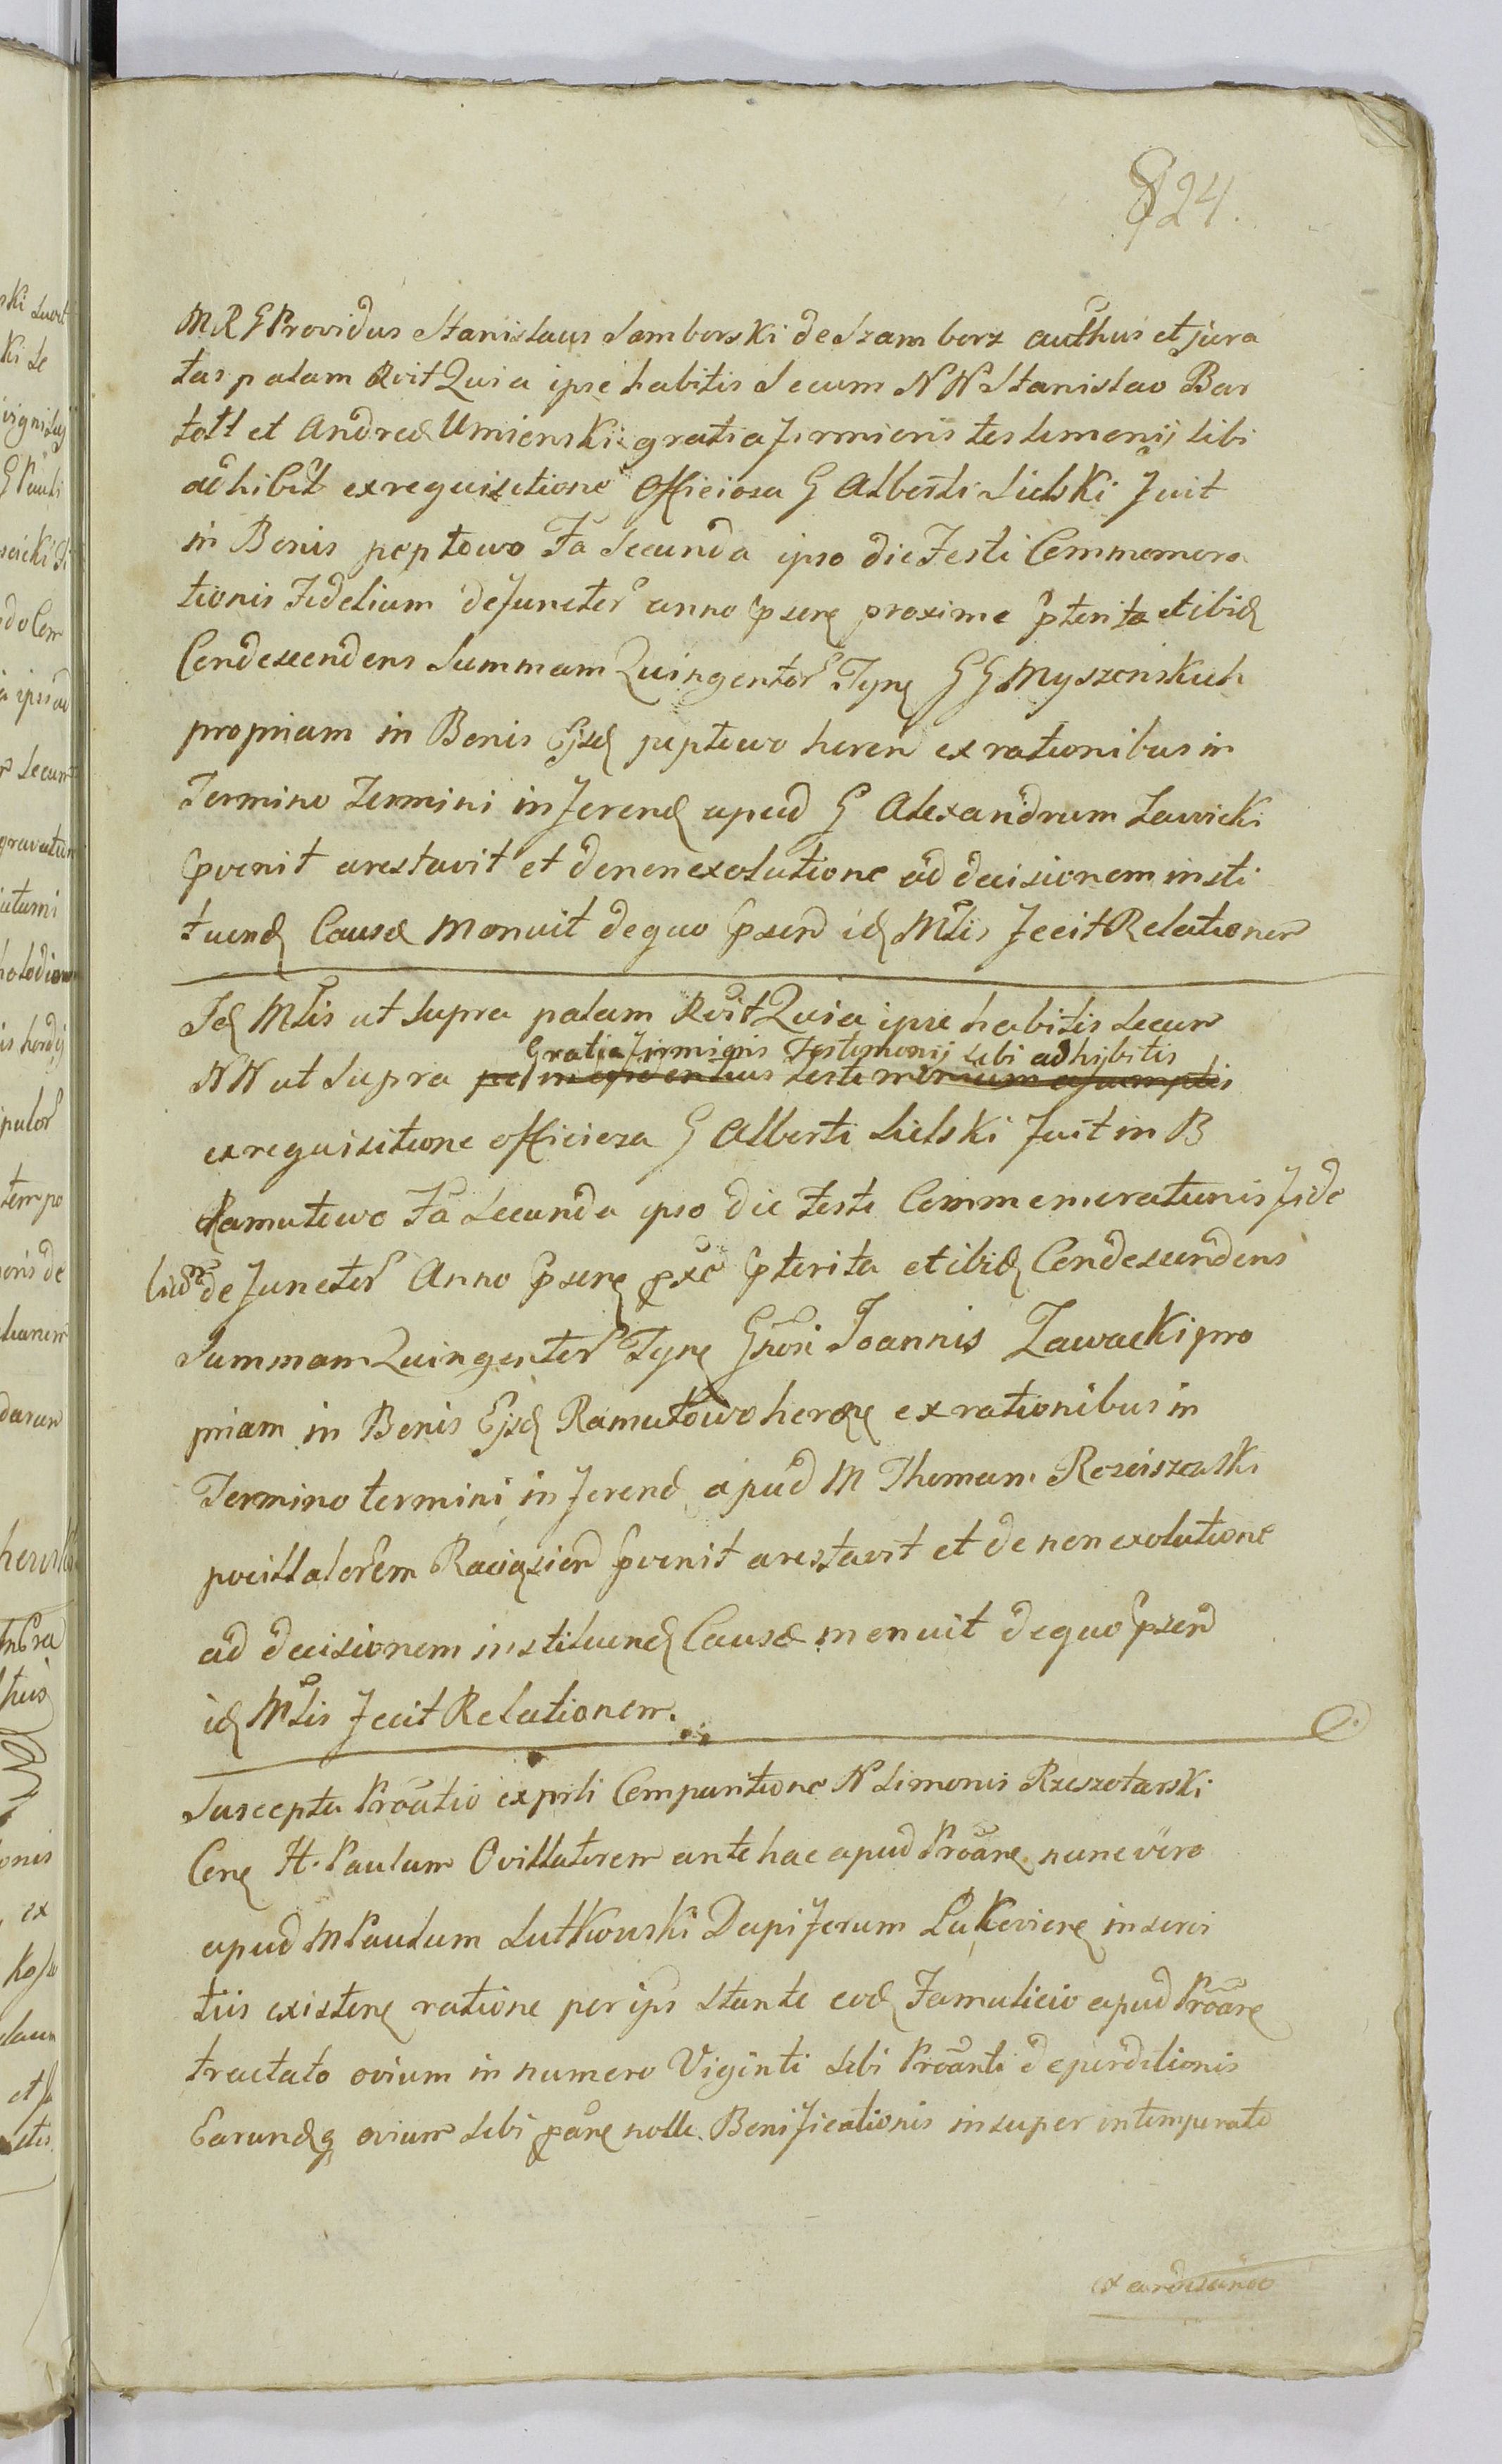 824.
M R G Providus Stanislaus Samborski de Szamborz authus et jura
tus palam Rvit Quia ipse habitis secum N N Stanislao Bar
tott et Andreæ Umienski gratia firmioris testimonij sibi
adhibit ex requisitione officiosa G Alberti Sielski fuit
in Bonis peptowo Fa Secunda ipso die Festi Commemora
tionis Fidelium defunctor anno psene proxime pterita et ibid
Condescendens Summam Quingentor Tyne G G Myszenskich
propriam in Bonis Ejsd peptowo heren ex rationibus in
Termino Termini inferend apud G Alexandrum Zawicki
pvenit arestavit et de non exolutione ad decisionem insti
tuend Causæ monuit de quo psend id Mtlis fecit Relationem
Id Mtlis ut Supra palam Rvit Quia ipse habitis secum
Gratia firmioris Testimonij sibi adhibitis
N N ut Supra
ex requisitione officiosa G Alberti Sielski fuit in B
Ramutowo Fa Secunda ipso die Festi Commemorationis fide
lium defunctor Anno psene pxe pterita et ibid Condescendens
Summam Quingentor Tyne Gnosi Joannis Zawacki pro
priam in Bonis Ejsd Ramutowo heren ex rationibus in
Termino termini inferend apud M Thomam Rosciszewski
pocillatorem Raciązien pvenit arestavit et de non exolutione
ad decisionem instituend Causæ monuit de quo psend
id Mtlis fecit Relationem.
Suscepta Proatio ex prti Comparitione N Simonis Rzeszotarski
Cone H. Paulum Ovillatorem ante hac apud Proane nunc vero
apud M Paulum Sutkowski Dapiferum Lukoviene in servi
tiis existene ratione per ips stante eod Famulicio apud Proane
tractato ovium in numero Viginti sibi Proanti deperditionis
Earundq ovium sibi pane nolle Bonificationis insuper intemperate